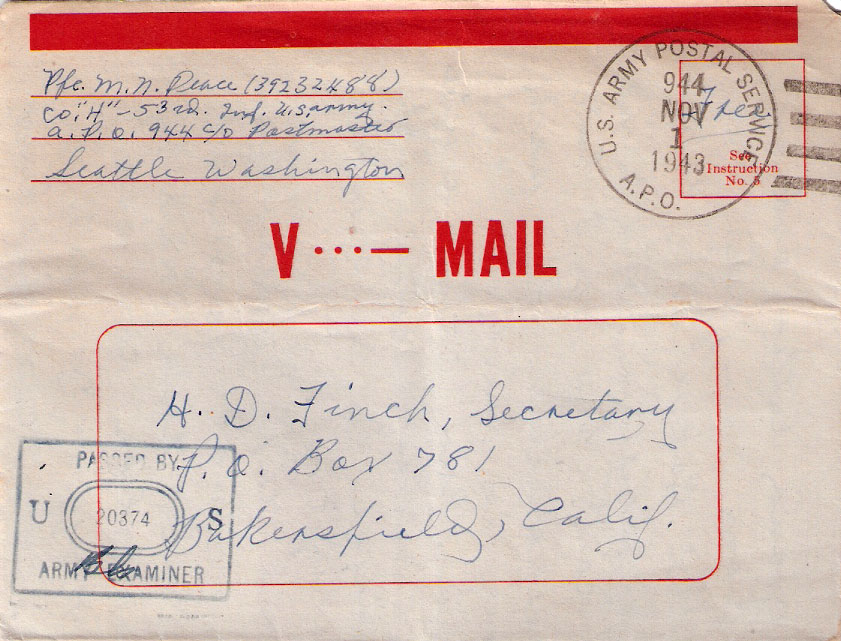 Pfc. M. N. Peace (39232488)
Co. "H" - 53rd. Inf. U.S. Army.
A.P.O. 944 c/o Postmaster
Seattle Washington
U.S. ARMY POSTAL SERVICE
944
NOV
1
1943
A.P.O.
Free
See
Instruction
No. 5
V ...— MAIL
H. D. Finch, Secretary
P. O. Box 781
Bakersfield, Calif.
PASSED BY
U 20374 S
ARMY EXAMINER